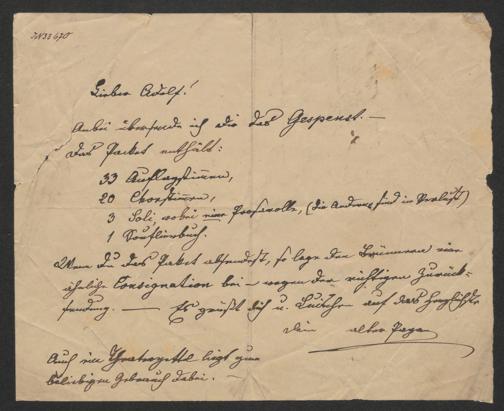 IN 33 670
Lieber Adolf!
Anbei übersende ich dir das Gespenst. —
Das Packet enthält:
33 Auflagstimmen,
20 Chorstimmen,
3 Soli, wobei eine Prosarolle, (die Andren sind in Verlust)
1 Soufflirbuch.
Wenn du das Paket absendest, so lege den Brünnern eine
ähnliche Consignation bei – wegen der richtigen Zurück-
sendung. — Es grüßt dich u. auf das Herzlichste
dein alter Papa
Auch ein Theaterzettel liegt zum
beliebigen Gebrauch dabei. —